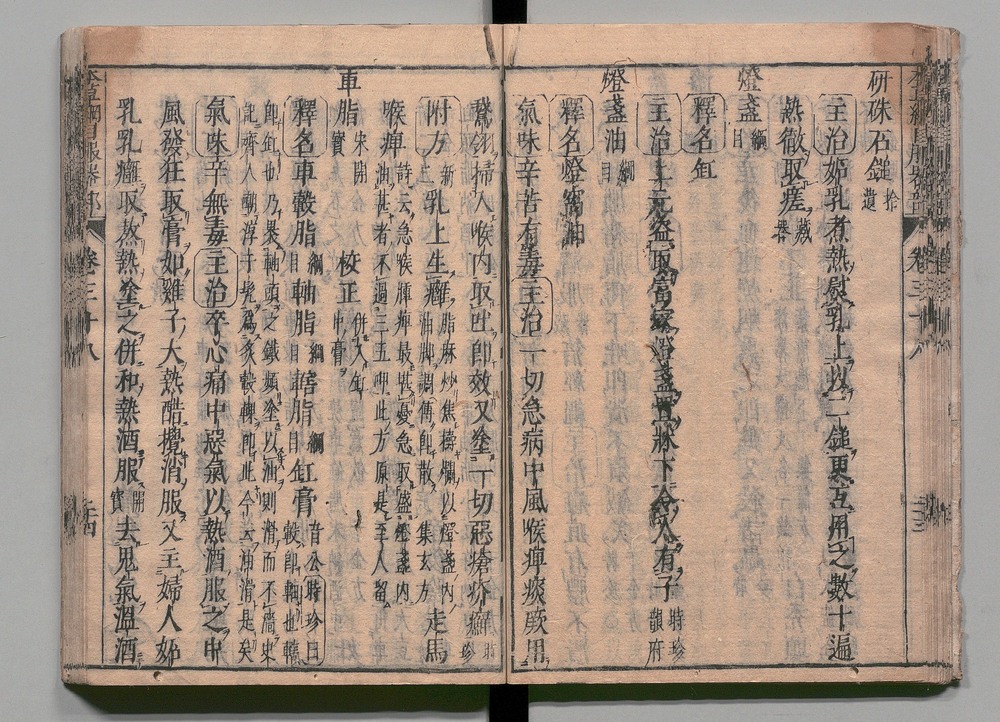 研硃石鎚 拾遺
主治妬乳煮熱熨乳上以二鎚更互用之數十遍
熱徹取瘥 藏器
燈盞 綱目
釋名缸
主治上元盜取富家燈盞置牀下令人有子 時珍 韻府
燈盞油 綱目
釋名燈窩油
氣味辛苦有毒主治一切急病中風喉痺痰厥用
鵞翎掃入喉內取吐即效又塗一切惡瘡疥癬 時珍
附方 新三 乳上生癰 脂麻炒焦擣爛以燈盞內油脚調傅即散 集玄方 走馬
喉痺 詩云急喉痺最堪憂急取盛燈盞內油甚者不過三五呷此方原是至人留
車脂 宋開寶 校正 併入缸中膏
釋名車轂脂 綱目 軸脂 綱目 轄脂 綱目 缸膏 音公時珍曰轂即軸也轄
即缸也乃裹軸頭之鐵頻塗以油則滑而不濇史記齊人嘲淳于髡為炙轂輠即此今云油滑是矣
氣味辛無毒主治卒心痛中惡氣以熱酒服之中
風發狂取膏如雞子大熱醋攪消服又主婦人妬
乳乳癰取熬熱塗之併和熱酒服 開寶 去鬼氣溫酒
卷三十八
卷三十八